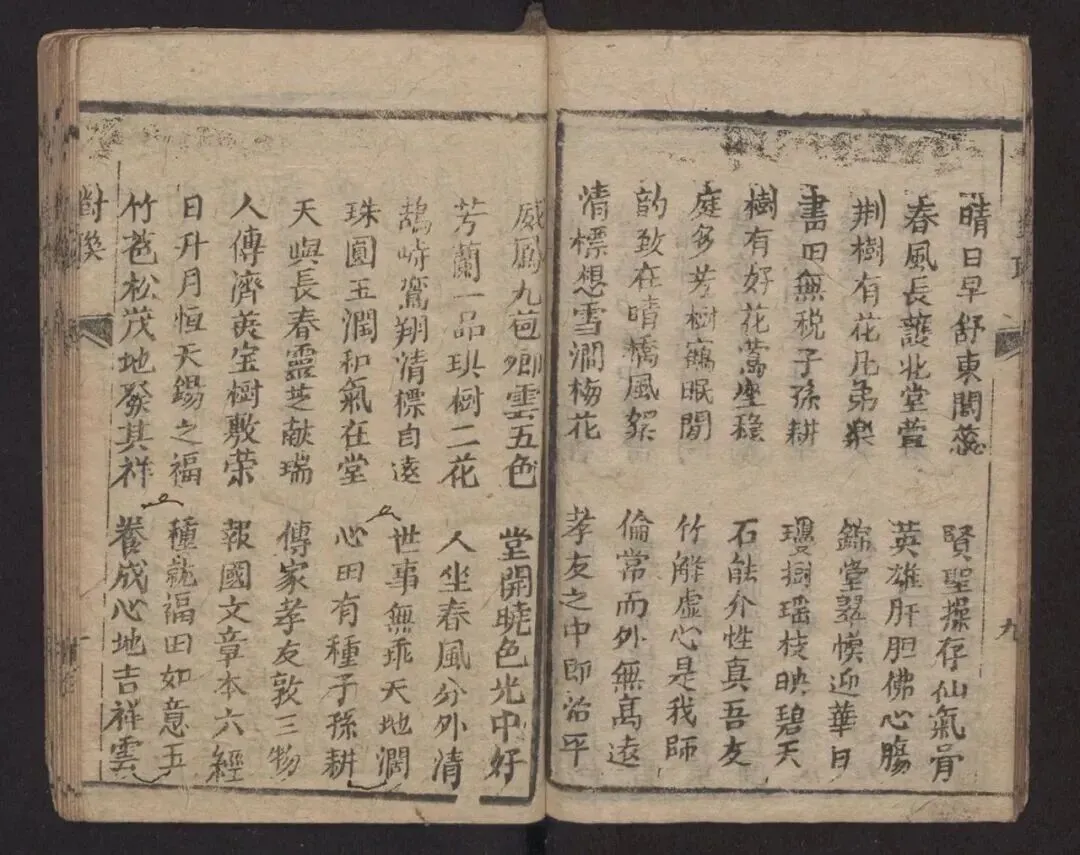 晴日早舒東閣蕊
春風長護北堂萱
荆樹有花兄弟楽
書田無税子孫耕
樹有好花鶯座穏
庭多芳樹鶴眠閒
韵致在晴橋風絮
清標想雪澗梅花
賢聖操存仙氣骨
英雄肝胆佛心腸
錦堂翠幙迎華日
瓊樹瑶枝映碧天
石能介性真吾友
竹解虛心是我師
倫常而外無高遠
孝友之中即治平
九
威鳳九苞卿雲五色
芳蘭一品琪樹二花
鵠峙鸞翔清標自遠
珠圓玉潤和氣在堂
天與長春靈芝献瑞
人傳濟美宝樹敷荣
日升月恒天錫之福
竹苞松茂地發其祥
堂開曉色光中好
人坐春風分外清
世事無乖天地濶
心田有種子孫耕
傳家孝友敦三物
報國文章本六經
種就福田如意玉
養成心地吉祥雲
對聯